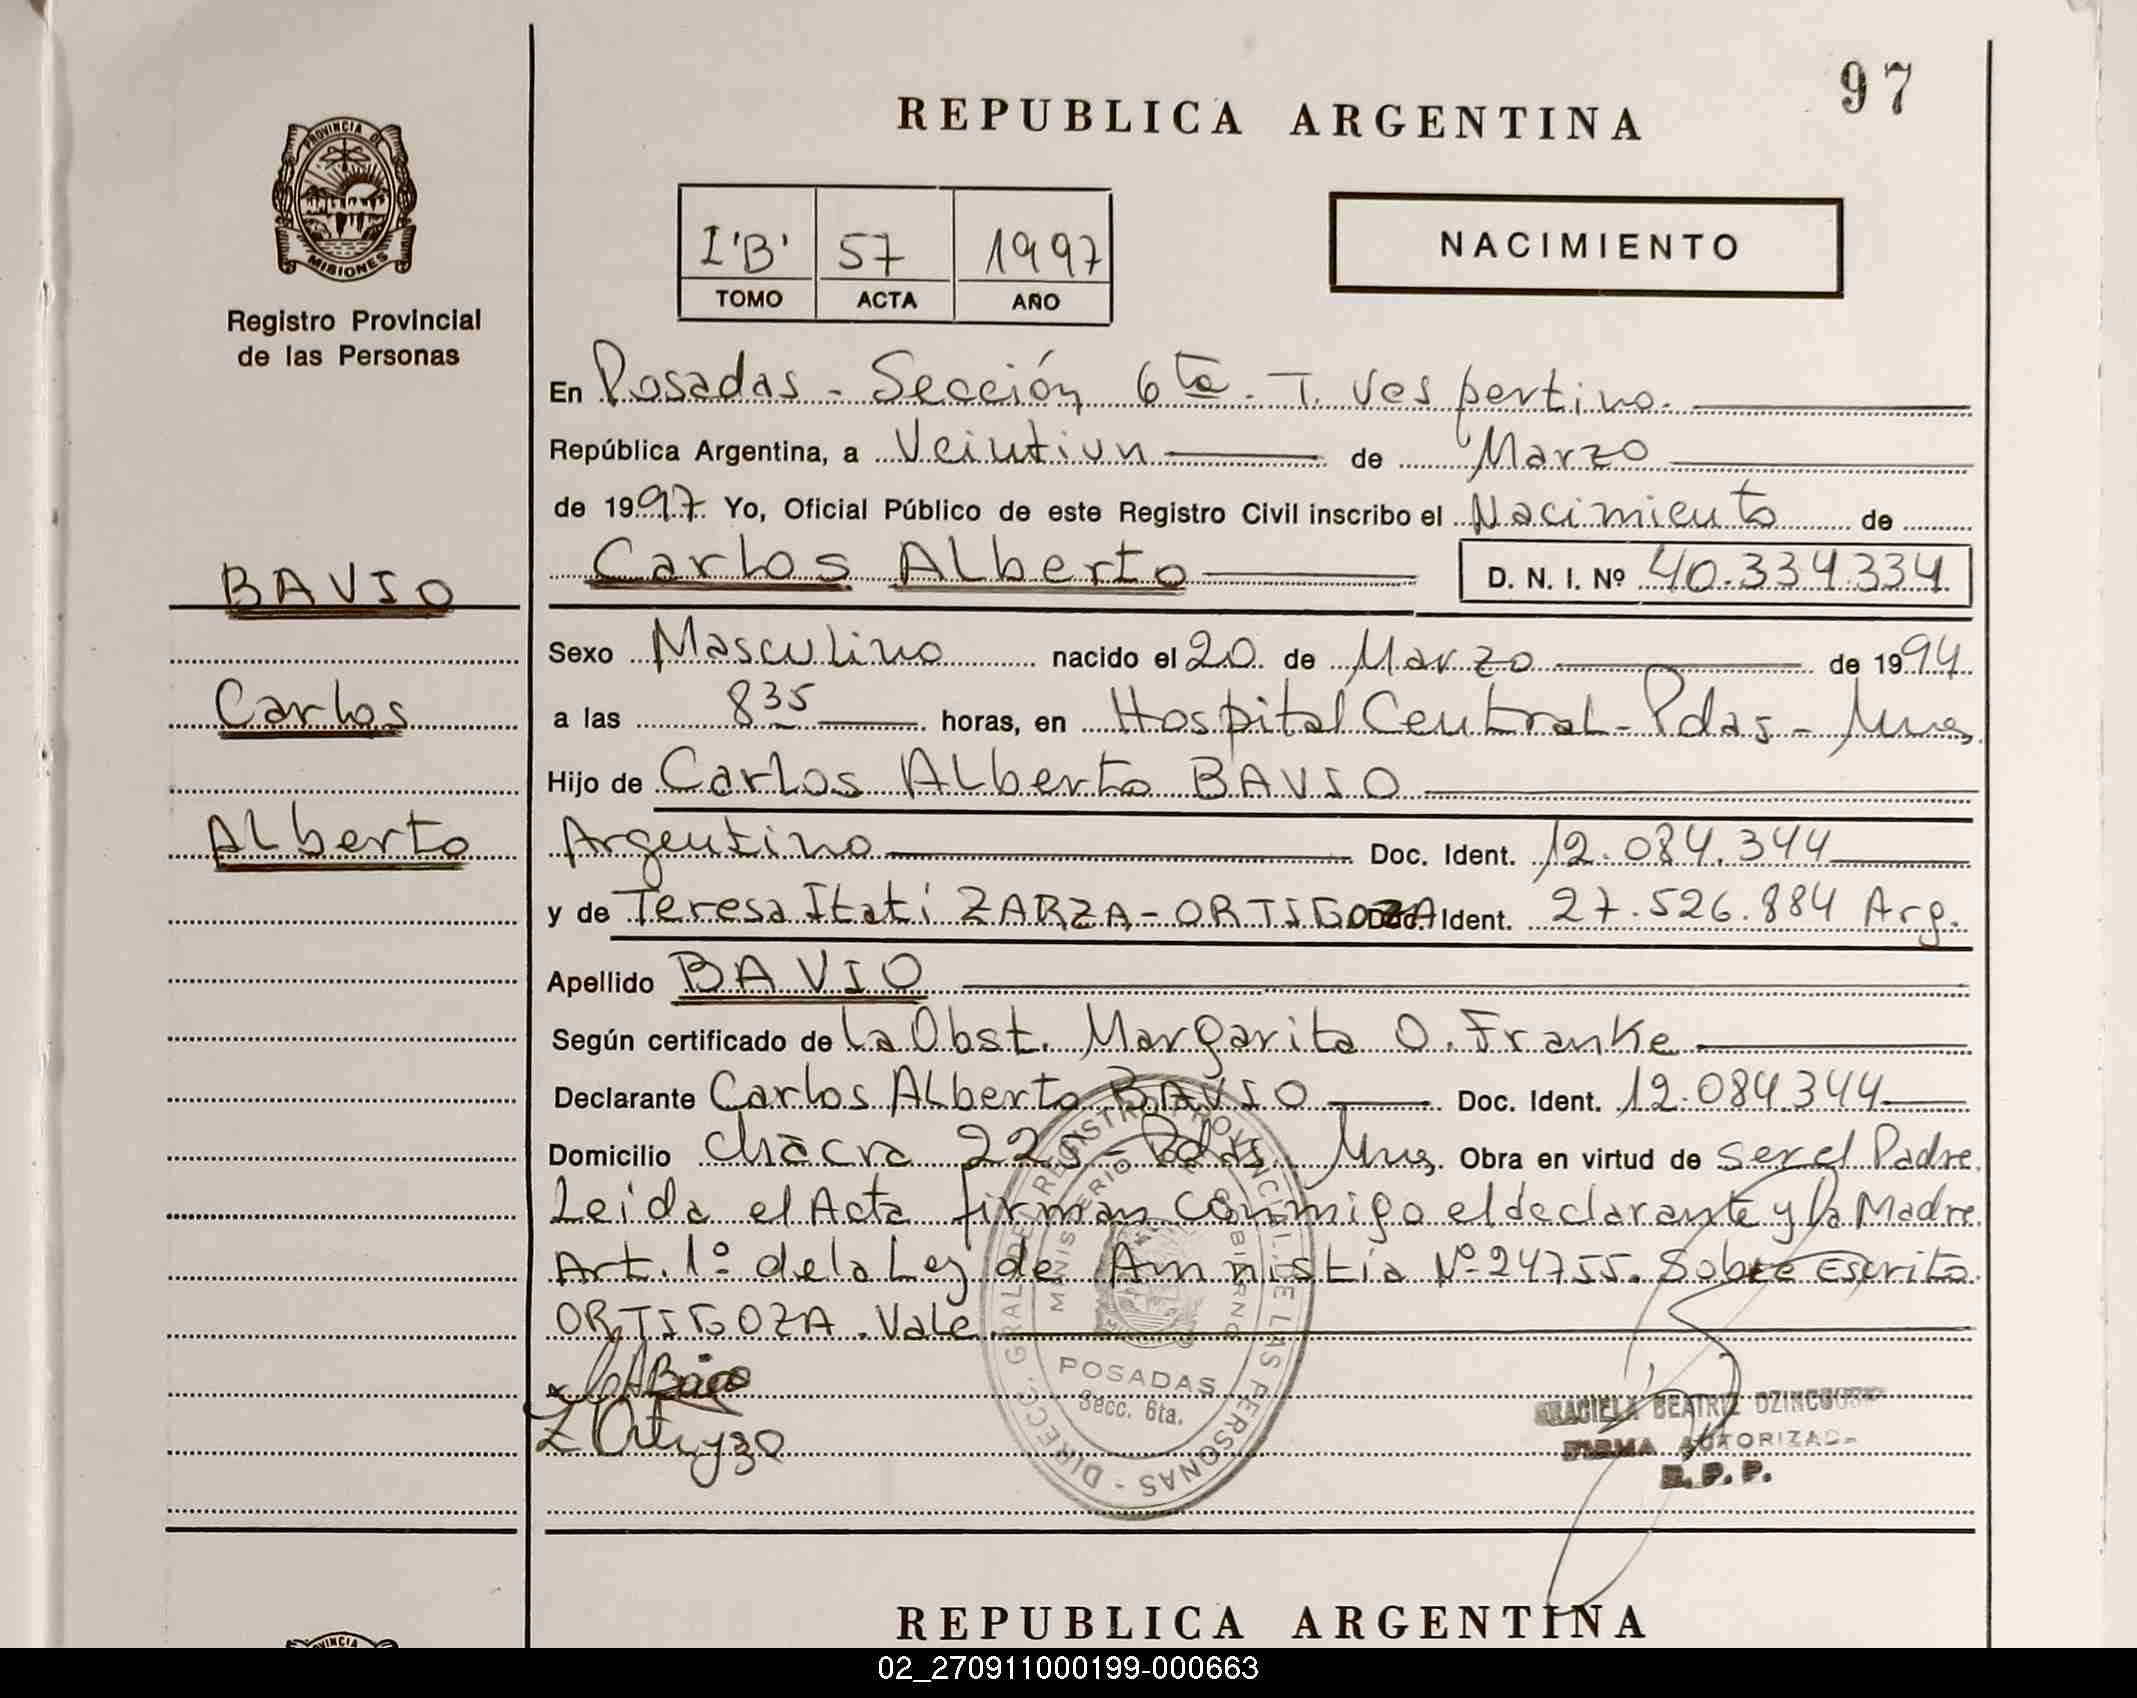 97
REPUBLICA ARGENTINA
PROVINCIA DE
MISIONES
Registro Provincial
de las Personas
I 'B' 57 1997
TOMO ACTA AÑO
NACIMIENTO
En Posadas - Sección 6ta. T. Vespertino.
República Argentina, a Veintiun de Marzo
de 1997 Yo, Oficial Público de este Registro Civil inscribo el Nacimiento de
Carlos Alberto D. N. I. Nº 40.334.334
BAVIO
Carlos
Alberto
Sexo Masculino nacido el 20 de Marzo de 1994
a las 8 35 horas, en Hospital Central - Pdas - Mnes.
Hijo de Carlos Alberto BAVIO
Argentino Doc. Ident. 12.084.344
y de Teresa Itatí ZARZA - ORTIGOZA Doc. Ident. 27.526.884 Arg.
Apellido BAVIO
Según certificado de la Obst. Margarita O. Franke
Declarante Carlos Alberto BAVIO Doc. Ident. 12.084.344
Domicilio Chacra 225 - Pdas Mnes. Obra en virtud de ser el Padre.
Leida el Acta firman conmigo el declarante y la Madre
Art. 1º de la Ley de Amnistía Nº 24755. Sobre Escrito.
ORTIGOZA. Vale.
DIRECC. GRAL. DEL REGISTRO PROVINCIAL DE LAS PERSONAS
MINISTERIO DE GOBIERNO
POSADAS
Secc. 6ta.
GRACIELA BEATRIZ
FIRMA AUTORIZADA
R. P. P.
REPUBLICA ARGENTINA
PROVINCIA
02_270911000199-000663